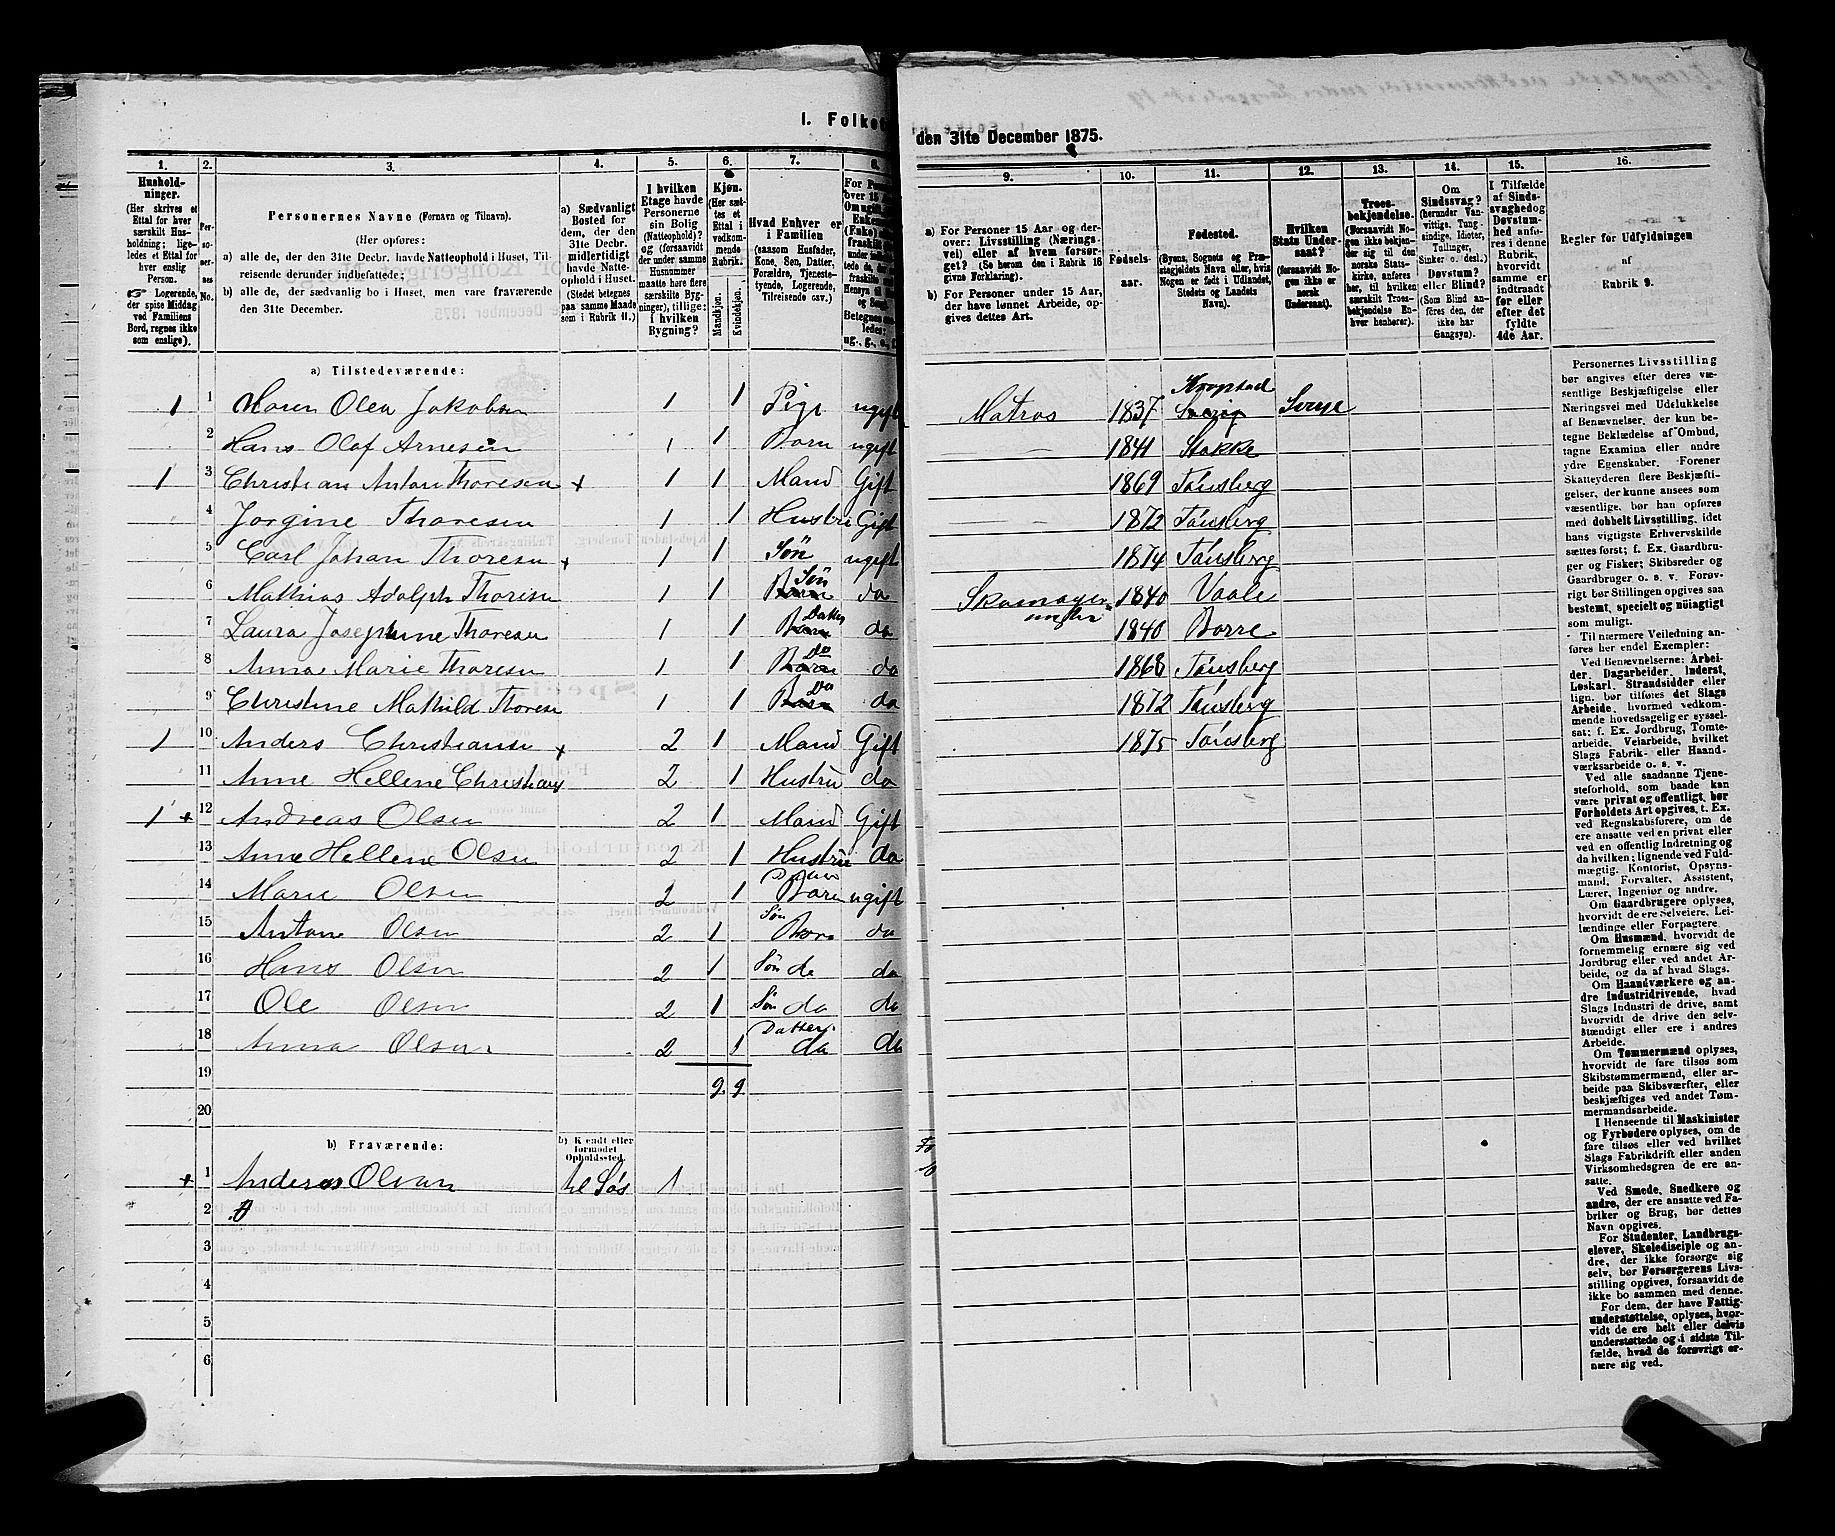 I. Folket
1.
2.
3.
4.
5.
6.
7.
8.
Hushold-
ninger.
(Her skrives et
Ettal for hver
særskilt Hus-
holdning; lige-
ledes et Ettal for
hver enslig
Person.
☞ Logerende,
der spise Middag
ved Familiens
Bord, regnes ikke
som enslige).
Per-
so-
ner-
nes
No.
Personernes Navne (Fornavn og Tilnavn).
(Her opføres:
a) alle de, der den 31te Decbr. havde Natteophold i Huset, Til-
reisende derunder indbefattede;
b) alle de, der sædvanlig bo i Huset, men vare fraværende
den 31te December.
a) Sædvanligt
Bosted for
dem, der den
31te Decbr.
midlertidigt
havde Natte-
ophold i Huset.
(Stedet betegnes
paa samme Maade
som i Rubrik 11.)
I hvilken
Etage havde
Personerne
sin Bolig
(Natteophold)?
og (forsaavidt
der under samme
Husnummer
maatte høre flere
særskilte Byg-
ninger), tillige:
i hvilken
Bygning?
Kjøn.
(Her sæt-
tes et
Ettal i
vedkom-
mende
Rubrik.
Mandkjøn.
Kvindekjøn.
Hvad Enhver er
i Familien
(saasom Husfader,
Kone, Søn, Datter,
Forældre, Tjeneste-
tyende, Logerende,
Tilreisende osv.)
a) Tilstedeværende:
1 1 Maren Olea Jakobsen 1 1 Pige ugift
2 Hans Olaf Arnesen 1 1 Barn ugift
1 3 Christian Anton Thoresen + 1 1 Mand Gift
4 Jorgine Thoresen 1 1 Hustru Gift
5 Carl Johan Thoresen + 1 1 Søn ugift
6 Mathias Adolph Thoresen 1 1 Barn Søn do
7 Laura Josephine Thoresen 1 1 Barn Datter do
8 Anna Marie Thoresen 1 1 Barn Do do
9 Christine Mathild Thoresen 1 1 Barn Do do
1 10 Anders Christiansen + 2 1 Mand Gift
11 Anne Hellene Christians 2 1 Hustru do
1 + 12 Andreas Olsen 2 1 Mand Gift
13 Anne Hellene Olsen 2 1 Hustru do
14 Marie Olsen 2 1 Datter Barn ugift
15 Anton Olsen 2 1 Søn Barn do
16 Hans Olsen 2 1 Søn do do
17 Ole Olsen 2 1 Søn do do
18 Anna Olsen 2 1 Datter do do
19 9 9
20
b) Fraværende:
b) Kjendt eller
formodet
Opholdssted.
+ 1 Anderas Olsen til Søs 1
2
3
4
5
6
den 31te December 1875.
9.
10.
11.
12.
13.
14.
15.
16.
a) For Personer 15 Aar og der-
over: Livsstilling (Nærings-
vei) eller af hvem forsør-
get? (Se herom den i Rubrik 16
givne Forklaring).
b) For Personer under 15 Aar,
der have lønnet Arbeide, op-
gives dettes Art.
Fødsels-
aar.
Fødested.
(Byens, Sognets og Præ-
stegjeldets Navn eller, hvis
Nogen er født i Udlandet,
Stedets og Landets
Navn).
Hvilken
Stats Under-
saat?
(forsaavidt No-
gen ikke er
norsk
Undersaat).
Troes-
bekjendelse.
(Forsaavidt No-
gen ikke bekjen-
der sig til den
norske Stats-
kirke, anføres
til hvilket
særskilt Troes-
bekjendelse En-
hver henhører).
Om
Sindssvag?
(herunder Van-
vittige, Tung-
sindige, Idioter,
Tullinger,
Sinker o. desl.)
Døvstum?
eller Blind?
(Som Blind an-
føres den, der
ikke har
Gangsyn).
I Tilfælde
af Sinds-
svaghed og
Døvstum-
hed anfø-
res i denne
Rubrik,
hvorvidt
samme er
indtraadt
før eller
efter det
fyldte
4de Aar.
Regler for Udfyldningen
af
Rubrik 9.
Matros 1837 Kropstad Sverig Sverge
1841 Stokke
1869 Tönsberg
1872 Tönsberg
1874 Tönsberg
1840 Vaale
1840 Borre
1868 Tönsberg
1872 Tönsberg
1875 Tönsberg
Personernes Livsstilling
bør angives efter deres væ-
sentlige Beskjæftigelse eller
Næringsvei med Udelukkelse
af Benævnelser, der kun be-
tegne Beklædelse af Ombud,
tagne Examina eller andre
ydre Egenskaber. Forener
Skatteyderen flere Beskjæfti-
gelser, der kunne ansees som
væsentlige, bør han opføres
med dobbelt Livsstilling, idet
hans vigtigste Erhvervskilde
sættes først; f. Ex. Gaardbru-
ger og Fisker; Skibsreder og
Gaardbruger o. s. v. Forøv-
rigt bør Stillingen opgives saa
bestemt, specielt og nøiagtigt
som muligt.
Til nærmere Veiledning an-
føres her endel Exempler:
Ved Benævnelserne: Arbei-
der, Dagarbeider, Inderst,
Løskarl, Strandsidder eller
lign. bør tilføies det Slags
Arbeide, hvormed vedkom-
mende hovedsagelig er syssel-
sat; f. Ex. Jordbrug, Tomte-
arbeide, Veiarbeide, hvilket
Slags Fabrik- eller Haand-
værksarbeide o. s. v.
Ved alle saadanne Tjene-
steforhold, som baade kan
være privat og offentligt, bør
Forholdets Art opgives, t. Ex.
ved Regnskabsførere, om de
ere ansatte ved en privat eller
ved en offentlig Indretning og
da hvilken; lignende ved Fuld-
mægtig, Kontorist, Opsyns-
mand, Forvalter, Assistent,
Lærer, Ingeniør og andre.
Om Gaardbrugere oplyses,
hvorvidt de ere Selveiere, Lei-
lændinge eller Forpagtere.
Om Husmænd, hvorvidt de
fornemmelig ernære sig ved
Jordbrug eller ved andet Ar-
beide, og da af hvad Slags.
Om Haandværkere og an-
dre Industridrivende, hvad
Slags Industri de drive, samt
hvorvidt de drive den selv-
stændigt eller ere i andres
Arbeide.
Om Tømmermænd oplyses,
hvorvidt de fare tilsøs som
Skibstømmermænd, eller ar-
beide paa Skibsværfter, eller
beskjæftiges ved andet Tøm-
mermandsarbeide.
I Henseende til Maskinister
og Fyrbødere oplyses, om de
fare tilsøs eller ved hvilket
Slags Fabrikdrift eller anden
Virksomhedsgren de ere an-
satte.
Ved Smede, Snedkere og
andre, der ere ansatte ved Fa-
briker og Brug, bør dettes
Navn opgives.
For Studenter, Landbrugs-
elever, Skoledisciple og an-
dre, der ikke forsørge sig
selv, bør Forsørgerens Livs-
stilling opgives, forsaavidt de
ikke bo sammen med denne.
For dem, der have Fattig-
understøttelse, oplyses, hvor-
vidt de ere helt eller delvis
understøttede og i sidste Til-
fælde, hvad de forøvrigt er-
nære sig ved.